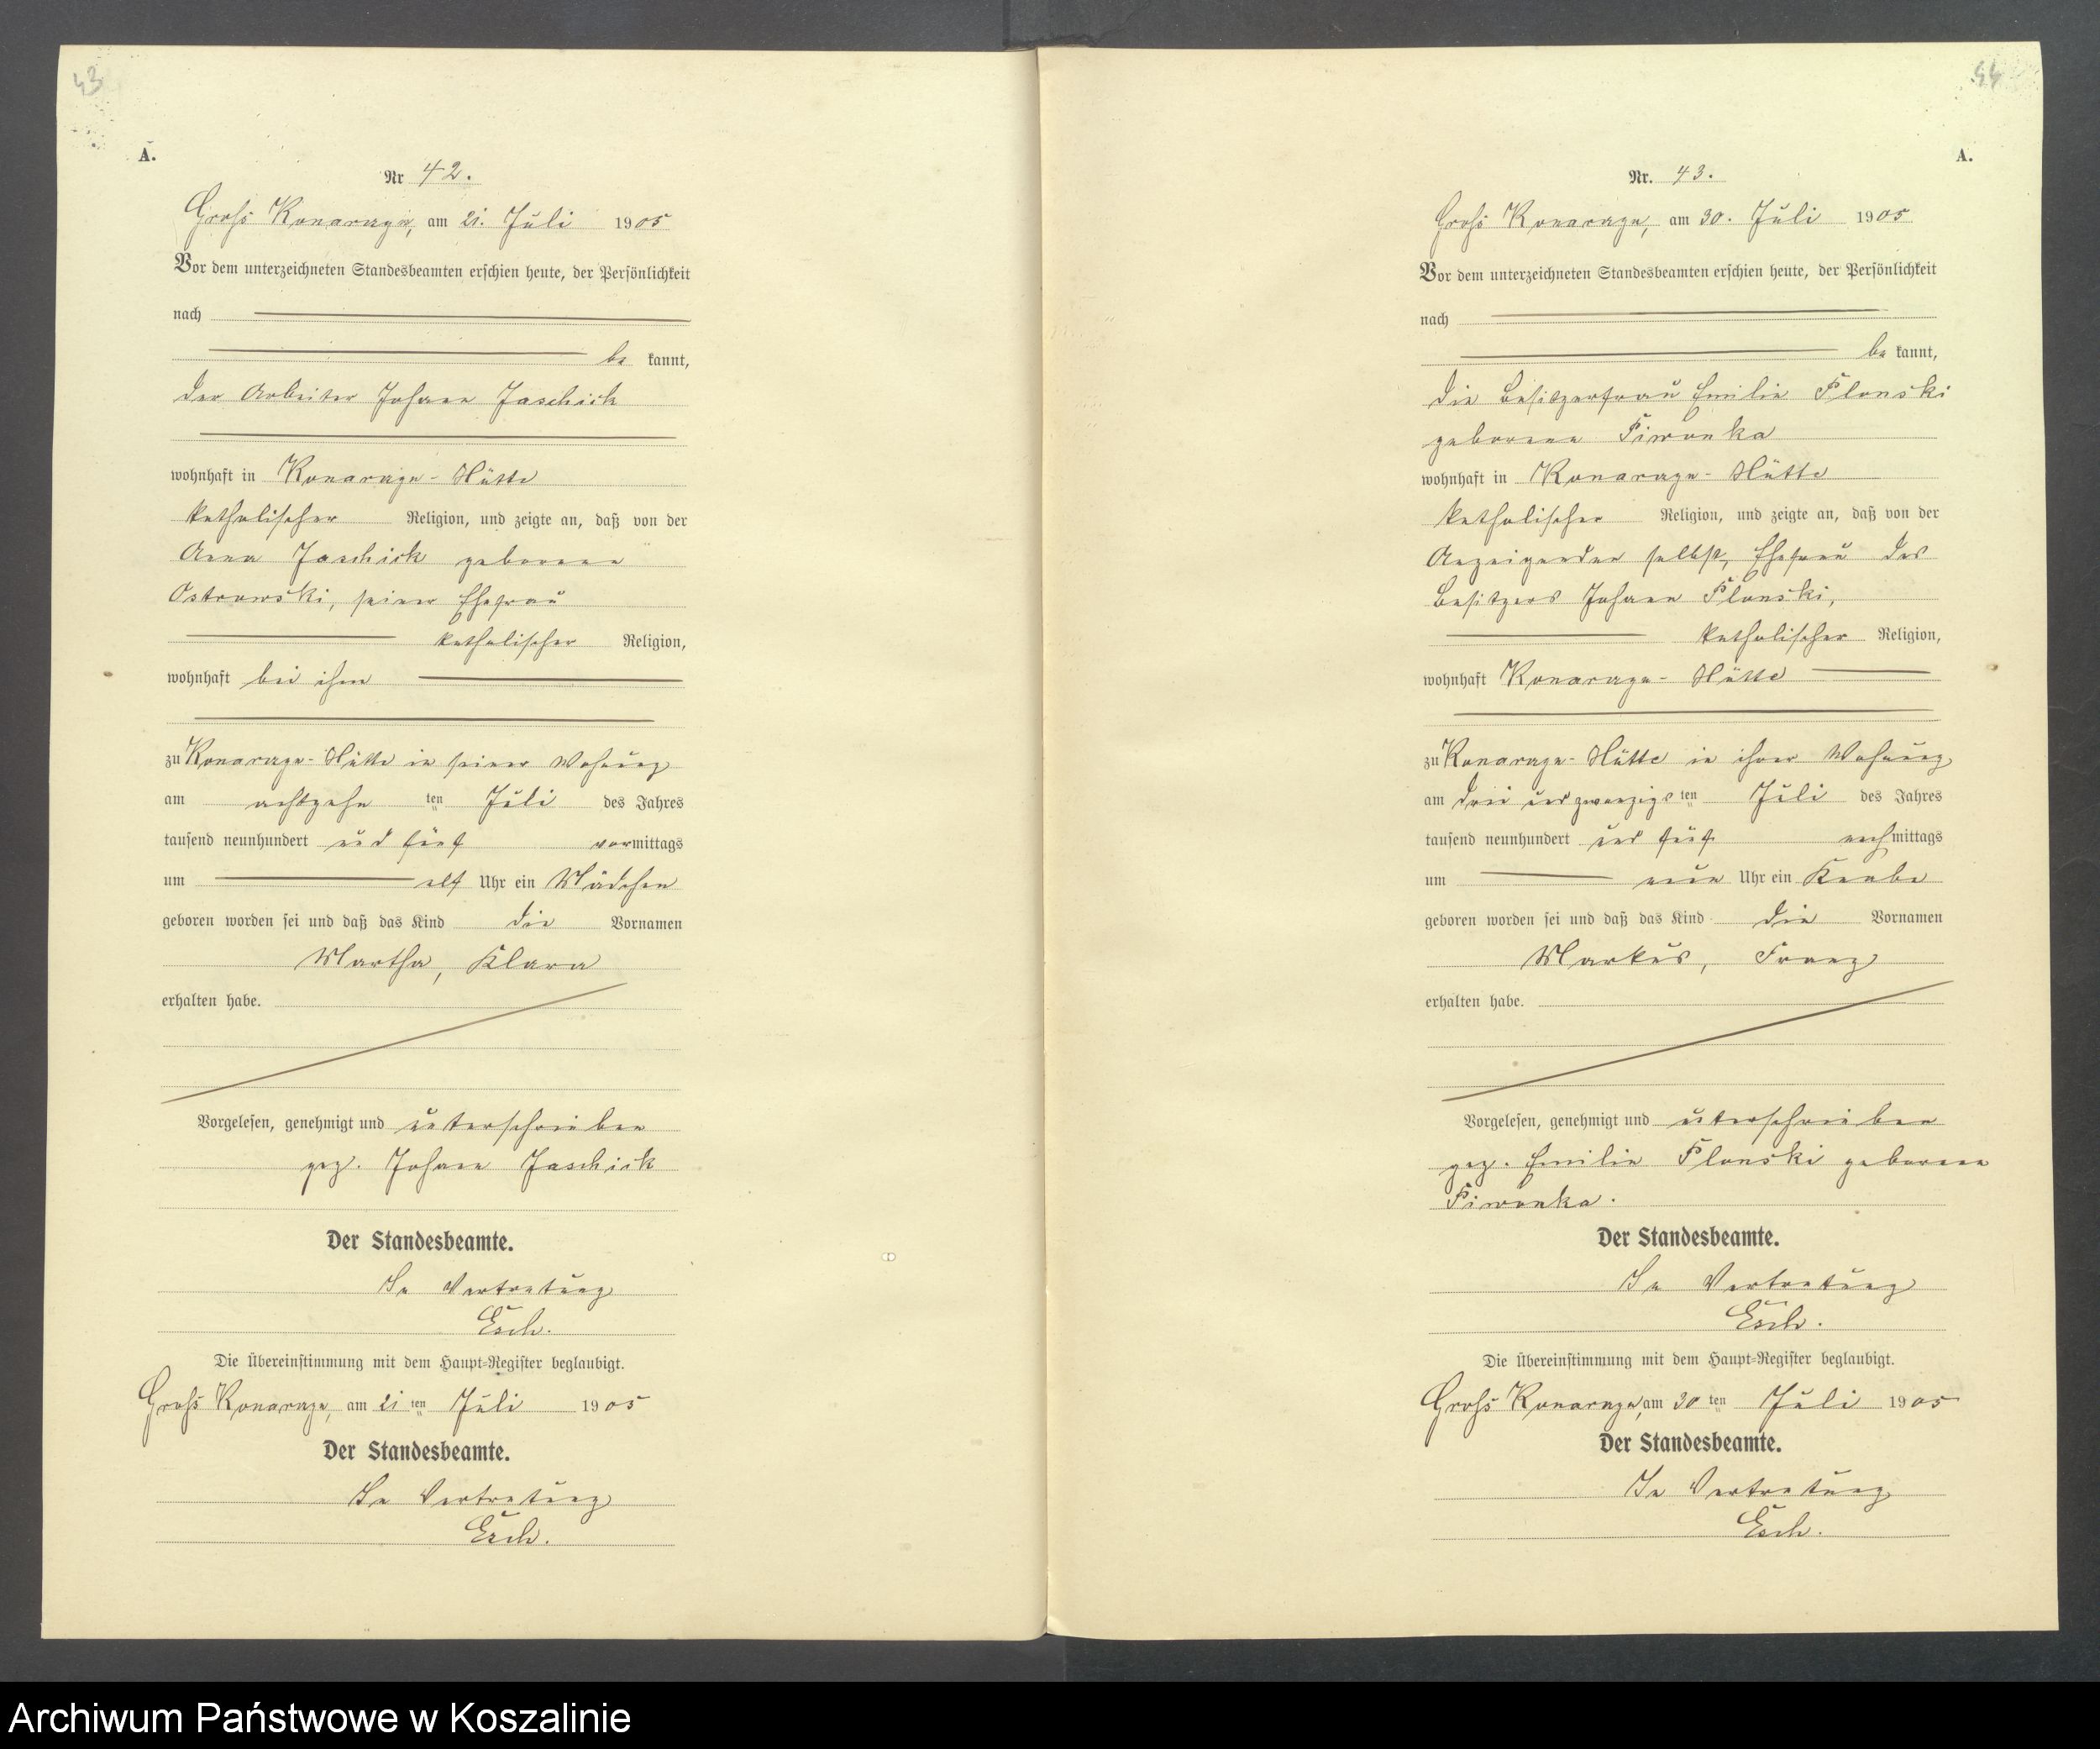 43
A.
Nr 42.
Groß Konarzyn, am 21. Juli 1905
Vor dem unterzeichneten Standesbeamten erschien heute, der Persönlichkeit
nach
be kannt,
der Arbeiter Johann Jaschick
wohnhaft in Konarzyn-Hütte
katholischer Religion, und zeigte an, daß von der
Anna Jaschick geborenen
Ostrowski, seiner Ehefrau
katholischer Religion,
wohnhaft bei ihm
zu Konarzyn-Hütte in seiner Wohnung
am achtzehn ten Juli des Jahres
tausend neunhundert und fünf vormittags
um elf Uhr ein Mädchen
geboren worden sei und daß das Kind die Vornamen
Martha, Klara
erhalten habe.
Vorgelesen, genehmigt und unterschrieben
gez. Johann Jaschick
Der Standesbeamte.
In Vertretung
Esch.
Die Übereinstimmung mit dem Haupt-Register beglaubigt.
Groß Konarzyn, am 21 ten Juli 1905
Der Standesbeamte.
In Vertretung
Esch.
44
A.
Nr. 43.
Groß Konarzyn, am 30. Juli 1905
Vor dem unterzeichneten Standesbeamten erschien heute, der Persönlichkeit
nach
be kannt,
die Besitzerfrau Emilie Plonski
geborene Piwonka
wohnhaft in Konarzyn-Hütte
katholischer Religion, und zeigte an, daß von der
Anzeigenden selbst, Ehefrau des
Besitzers Johann Plonski,
katholischer Religion,
wohnhaft Konarzyn-Hütte
zu Konarzyn-Hütte in ihrer Wohnung
am drei und zwanzigs ten Juli des Jahres
tausend neunhundert und fünf nachmittags
um neun Uhr ein Knabe
geboren worden sei und daß das Kind die Vornamen
Markus, Franz
erhalten habe.
Vorgelesen, genehmigt und unterschrieben
gez. Emilie Plonski geborene
Piwonka.
Der Standesbeamte.
In Vertretung
Esch.
Die Übereinstimmung mit dem Haupt-Register beglaubigt.
Groß Konarzyn, am 30 ten Juli 1905
Der Standesbeamte.
In Vertretung
Esch.
Archiwum Państwowe w Koszalinie